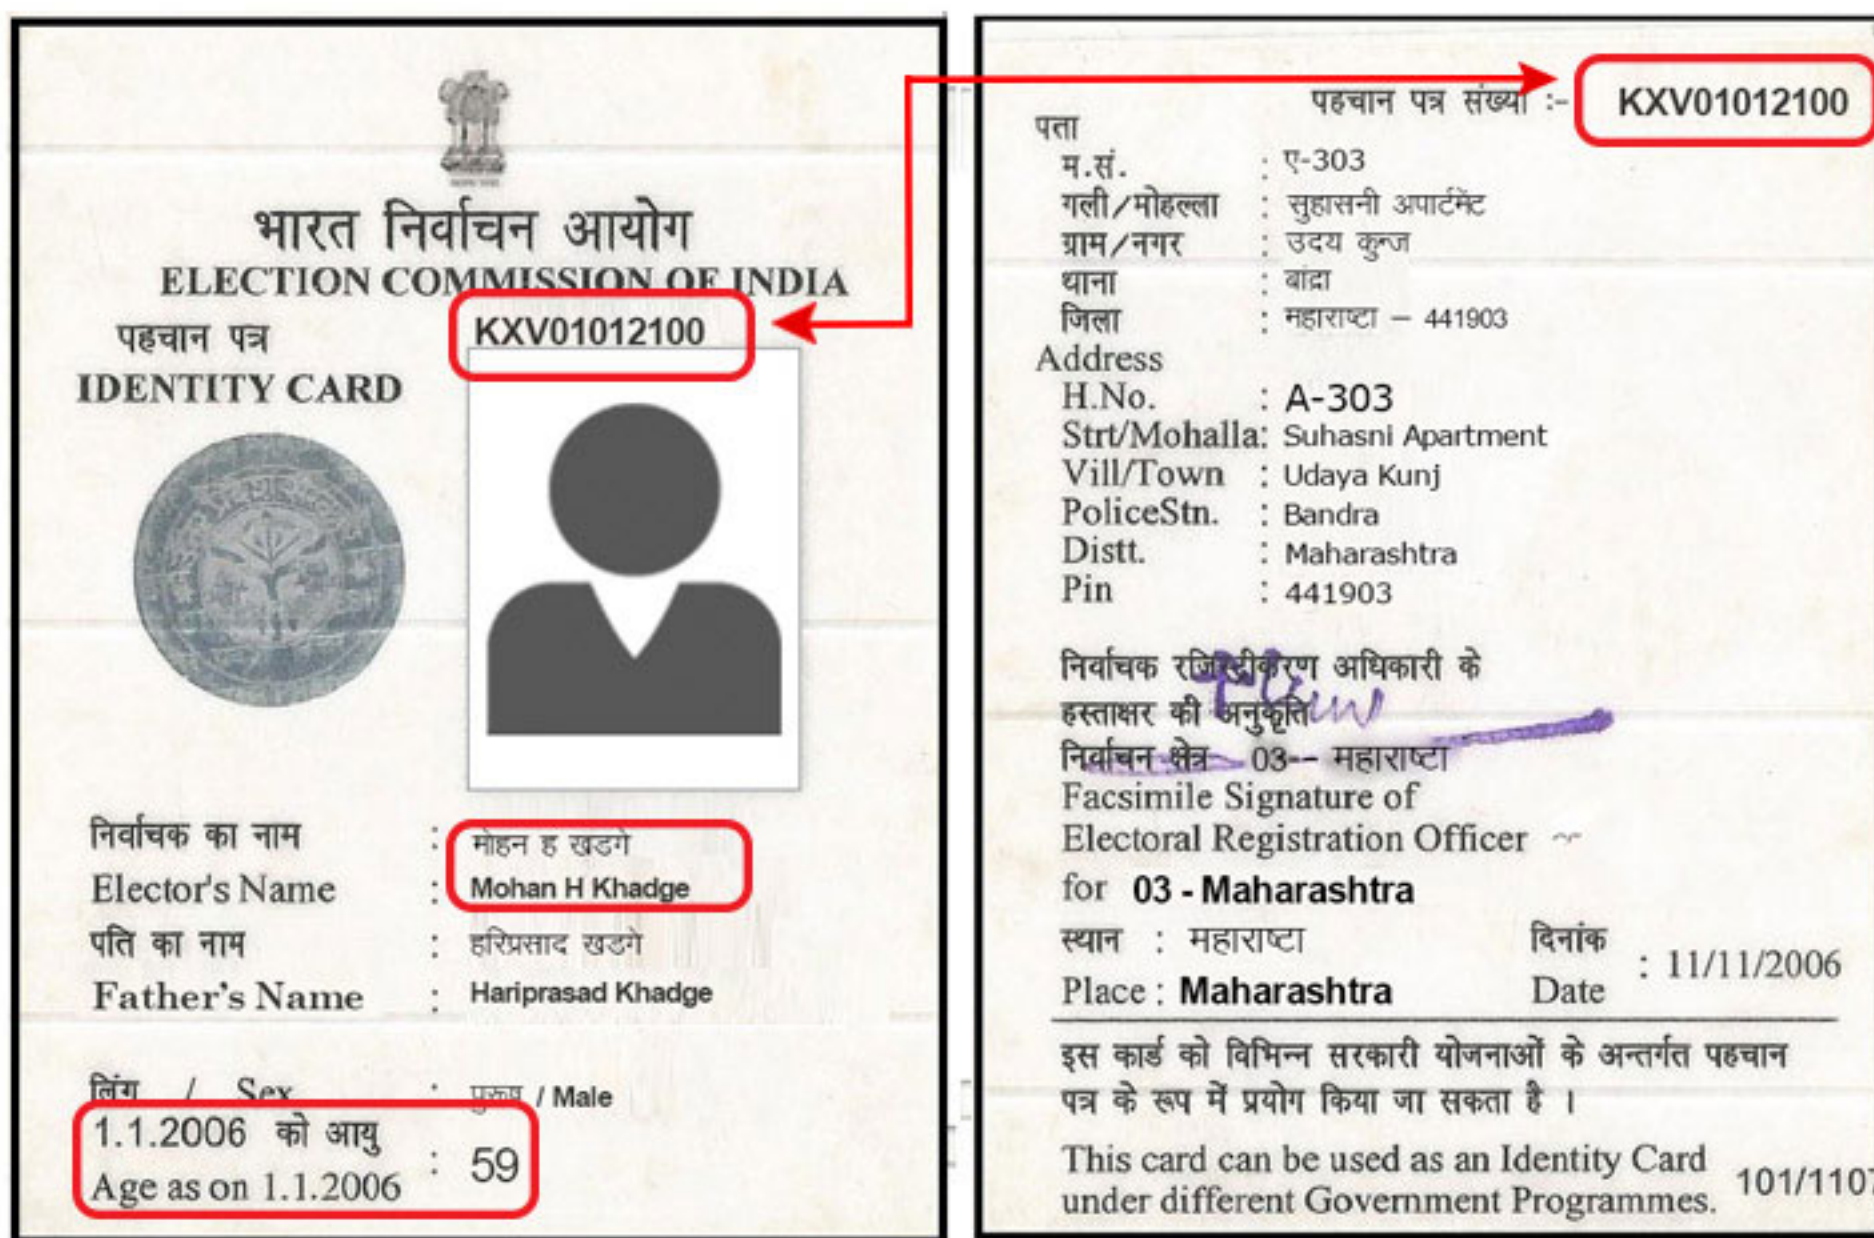 भारत निर्वाचन आयोग
ELECTION COMMISSION OF INDIA
पहचान पत्र
IDENTITY CARD
KXV01012100
निर्वाचक का नाम : मोहन ह खडगे
Elector's Name : Mohan H Khadge
पति का नाम : हरिप्रसाद खडगे
Father's Name : Hariprasad Khadge
लिंग / Sex : पुरूष / Male
1.1.2006 को आयु
Age as on 1.1.2006 : 59
पहचान पत्र संख्या :- KXV01012100
पता
म.सं. : ए-303
गली/मोहल्ला : सुहासनी अपार्टमेंट
ग्राम/नगर : उदय कुन्ज
थाना : बांद्रा
जिला : महाराष्टा – 441903
Address
H.No. : A-303
Strt/Mohalla: Suhasni Apartment
Vill/Town : Udaya Kunj
PoliceStn. : Bandra
Distt. : Maharashtra
Pin : 441903
निर्वाचक रजिस्ट्रीकरण अधिकारी के
हस्ताक्षर की अनुकृति
निर्वाचन क्षेत्र 03-- महाराष्टा
Facsimile Signature of
Electoral Registration Officer
for 03 - Maharashtra
स्थान : महाराष्टा दिनांक
Place : Maharashtra Date : 11/11/2006
इस कार्ड को विभिन्न सरकारी योजनाओं के अन्तर्गत पहचान
पत्र के रूप में प्रयोग किया जा सकता है ।
This card can be used as an Identity Card
under different Government Programmes. 101/1107